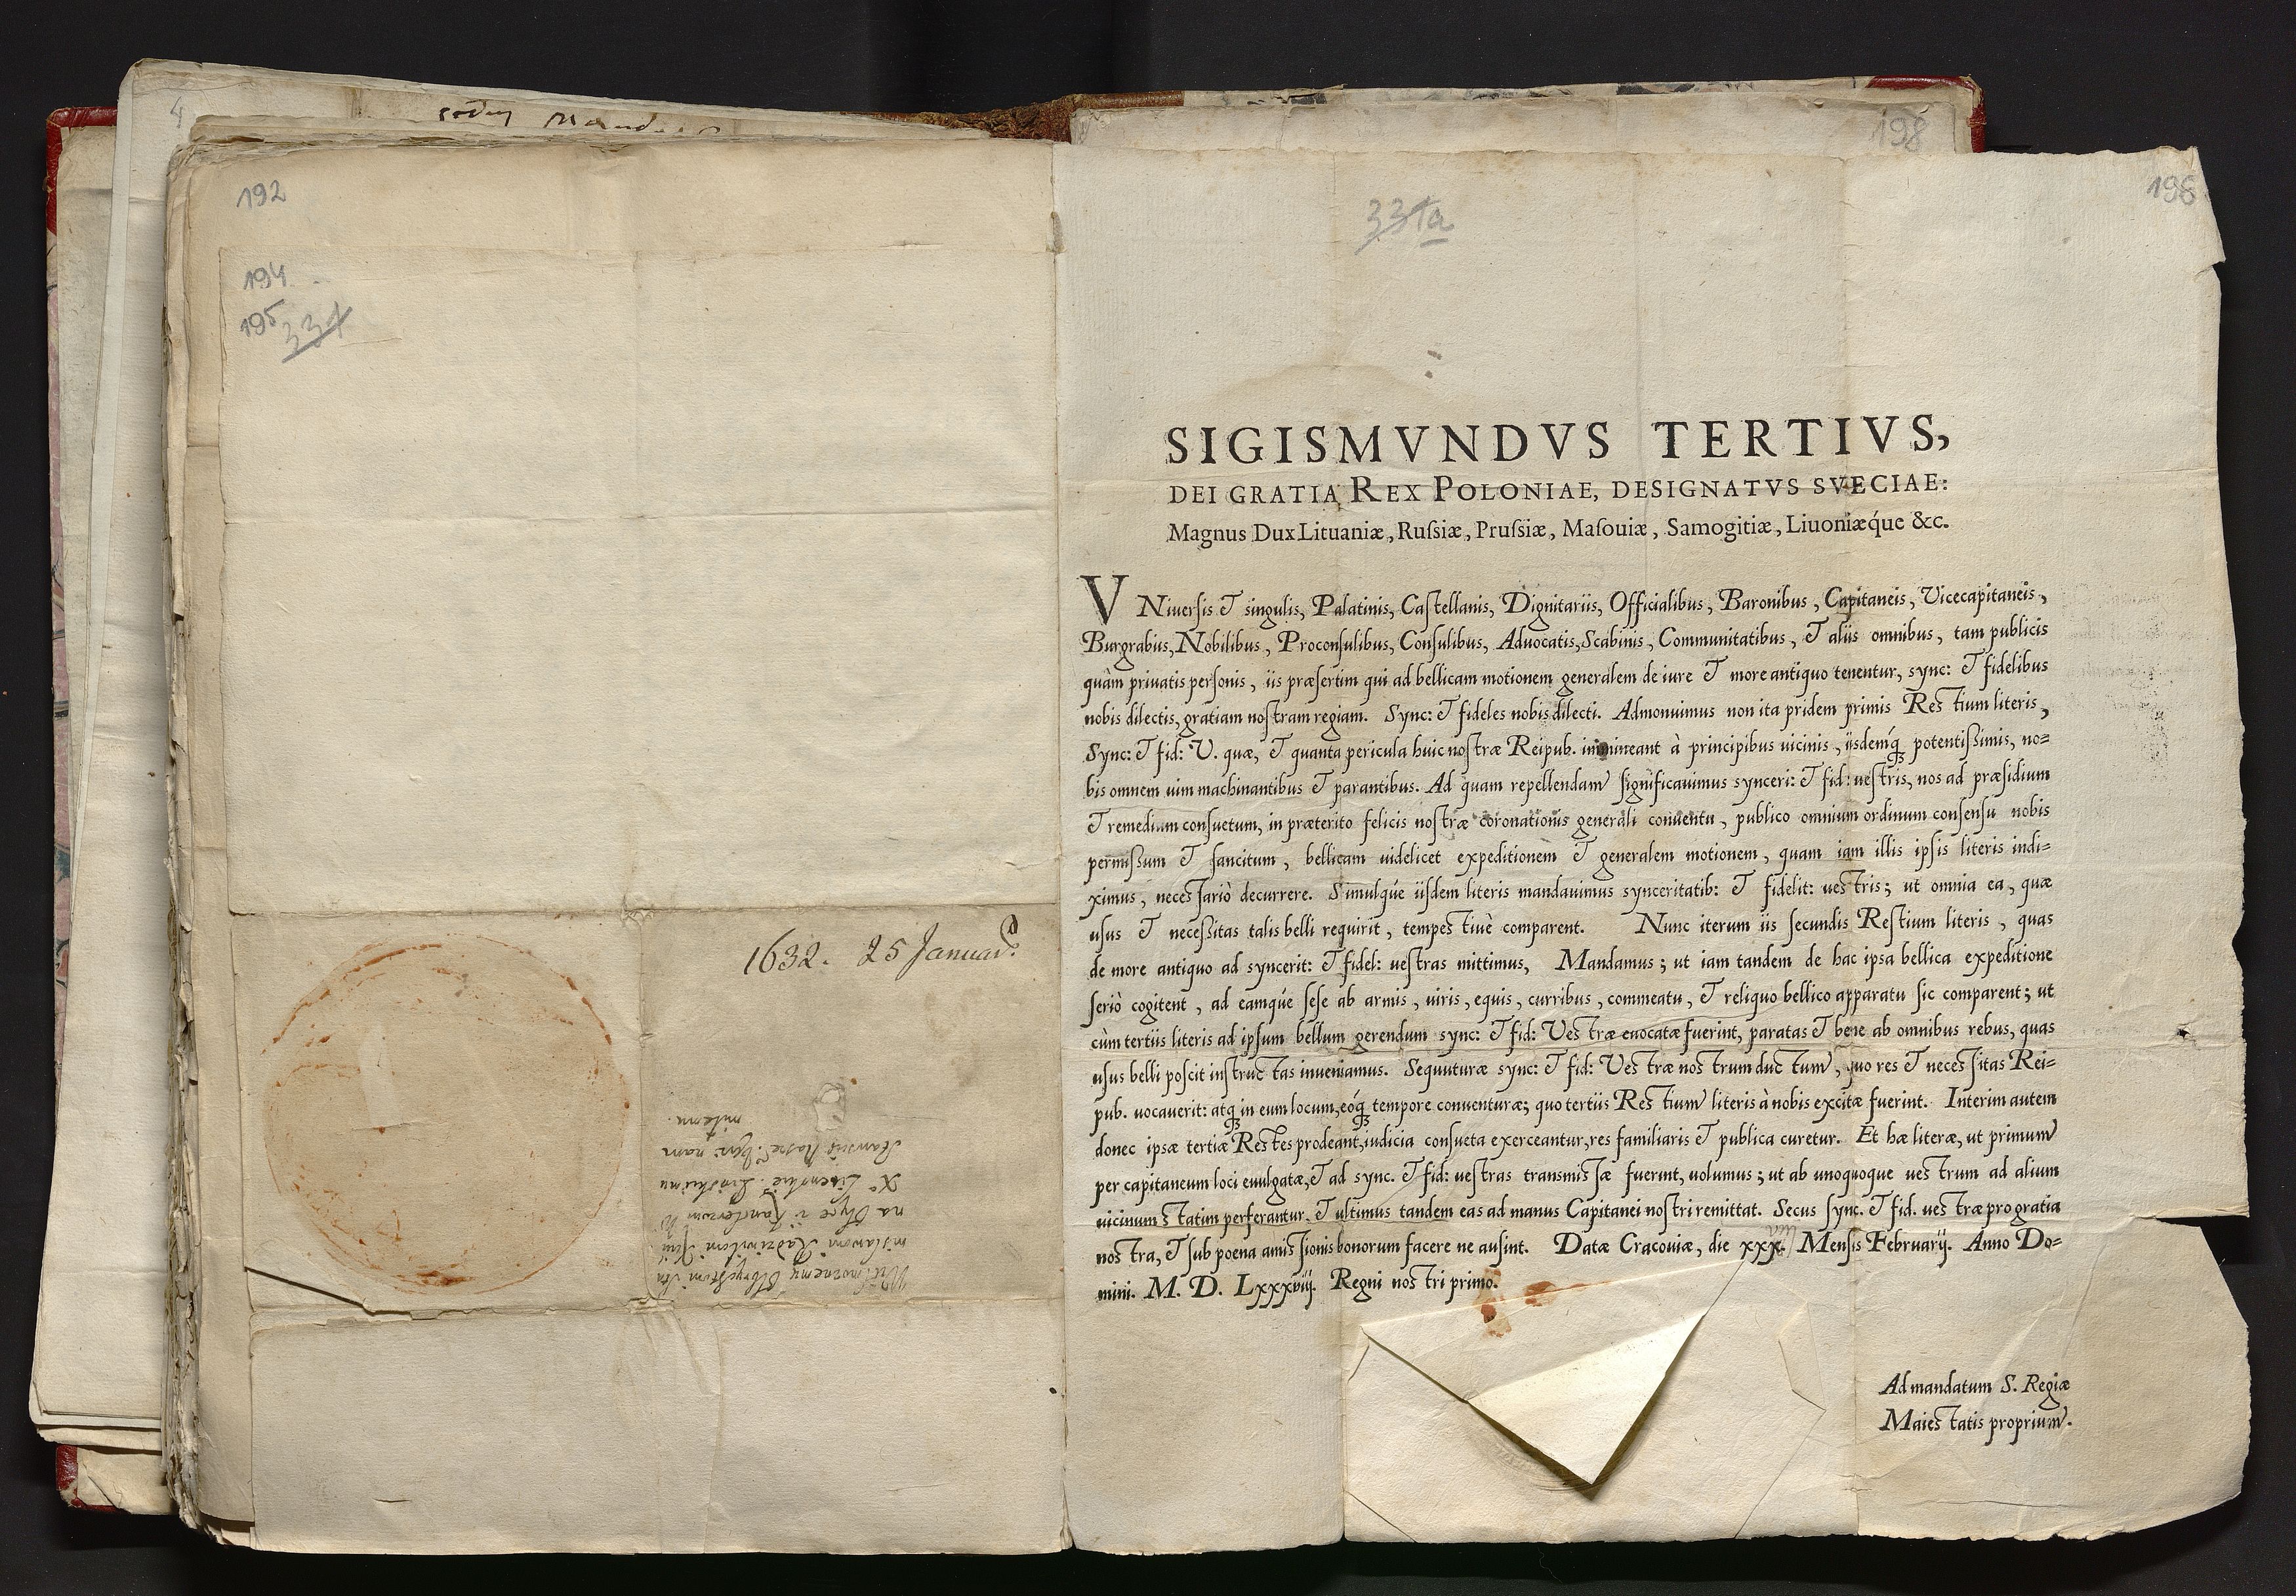 192
194
195
331
1632. 25 Januar
198
196
331a
SIGISMVNDVS TERTIVS,
DEI GRATIA REX POLONIAE, DESIGNATVS SVECIAE:
Magnus Dux Lituaniæ, Ruſsiæ, Pruſsiæ, Maſouiæ, Samogitiæ, Liuoniæq́ue &c.
VNiuerſis & singulis, Palatinis, Caſtellanis, Dignitariis, Officialibus, Baronibus, Capitaneis, Vicecapitaneis,
Burgrabiis, Nobilibus, Proconſulibus, Conſulibus, Aduocatis, Scabinis, Communitatibus, & aliis omnibus, tam publicis
quàm priuatis perſonis, iis præſertim qui ad bellicam motionem generalem de iure & more antiquo tenentur, sync: & fidelibus
nobis dilectis, gratiam noſtram regiam. Sync: & fideles nobis dilecti. Admonuimus non ita pridem primis Reſtium literis,
Sync: & fid: V. quæ, & quanta pericula huic noſtræ Reipub. immineant à principibus uicinis, iisdemq́; potentiſsimis, no=
bis omnem uim machinantibus & parantibus. Ad quam repellendam ſignificauimus synceri: & fid: ueſtris, nos ad præſidium
& remedium conſuetum, in præterito felicis noſtræ coronationis generali conuentu, publico omnium ordinum conſenſu nobis
permiſsum & ſancitum, bellicam uidelicet expeditionem & generalem motionem, quam iam illis ipſis literis indi=
ximus, neceſſariò decurrere. Simulq́ue iiſdem literis mandauimus synceritatib: & fidelit: ueſtris; ut omnia ea, quæ
uſus & neceſsitas talis belli requirit, tempeſtiuè comparent. Nunc iterum iis ſecundis Reſtium literis, quas
de more antiquo ad syncerit: & fidel: ueſtras mittimus, Mandamus; ut iam tandem de hac ipsa bellica expeditione
ſeriò cogitent, ad eamq́ue ſeſe ab armis, uiris, equis, curribus, commeatu, & reliquo bellico apparatu ſic comparent; ut
cùm tertiis literis ad ipſum bellum gerendum sync: & fid: Veſtræ euocatæ fuerint, paratas & bene ab omnibus rebus, quas
uſus belli poſcit inſtructas inueniamus. Sequuturæ sync: & fid: Veſtræ noſtrum ductum, quo res & neceſſitas Rei=
pub. uocauerit: atq; in eum locum, eoq́; tempore conuenturæ; quo tertiis Reſtium literis à nobis excitæ fuerint. Interim autem
donec ipsæ tertiæ Reſtes prodeant, iudicia conſueta exerceantur, res familiaris & publica curetur. Et hæ literæ, ut primum
per capitaneum loci euulgatæ, & ad sync. & fid: ueſtras transmiſſæ fuerint, uolumus; ut ab unoquoque ueſtrum ad alium
uicinum ſtatim perferantur. & ultimus tandem eas ad manus Capitanei noſtri remittat. Secus ſync. & fid. ueſtræ pro gratia
noſtra, & ſub poena amiſſionis bonorum facere ne auſint. Datæ Cracouiæ, die xxx. Mensis February. Anno Do=
mini. M. D. Lxxxviij. Regni noſtri primo.
Ad mandatum S. Regiæ
Maieſtatis proprium.